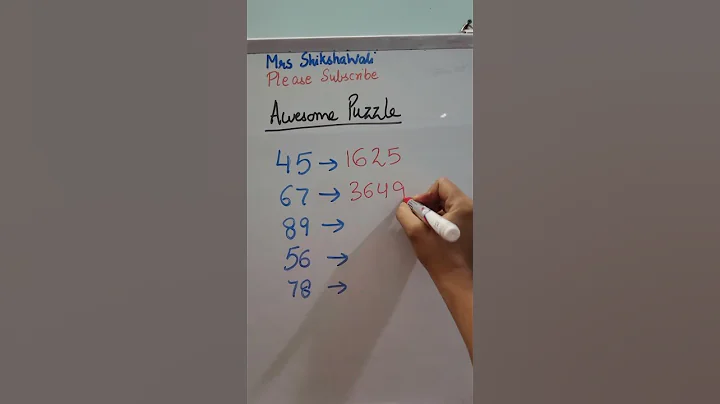 Mrs Shikshawali
Please Subscribe
Awesome Puzzle
45 → 1625
67 → 3649
89 →
56 →
78 →